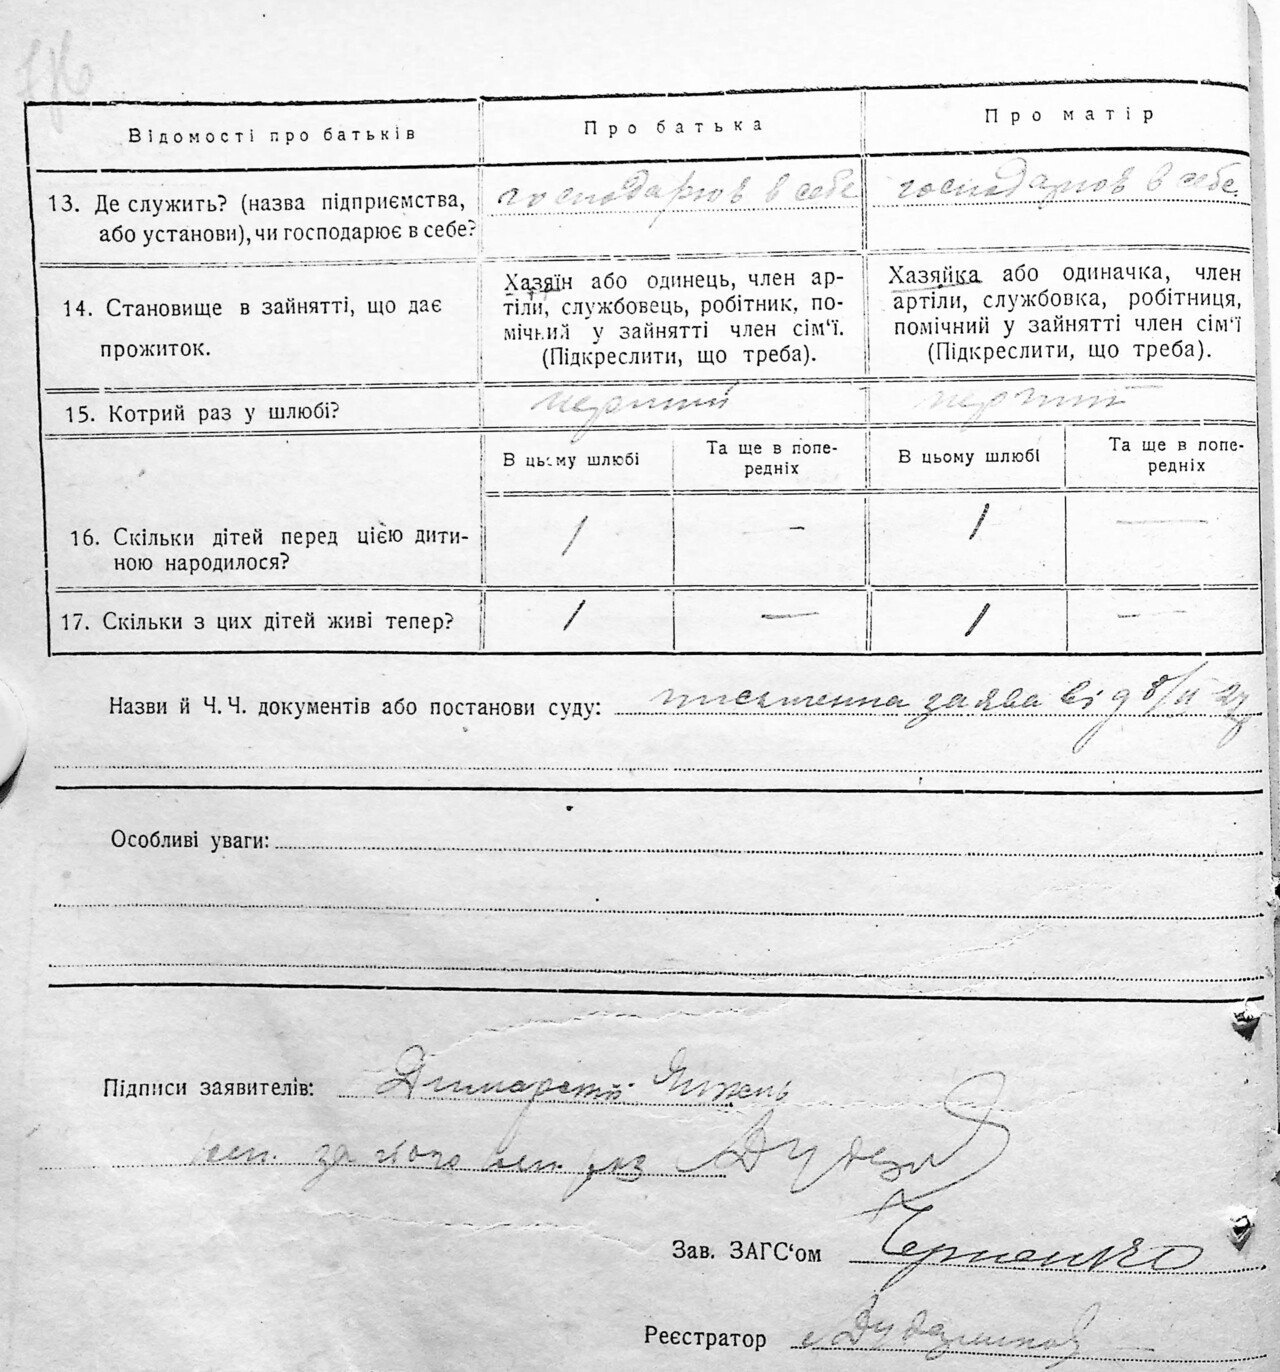 Відомості про батьків
Про батька
Про матір
13. Де служить? (назва підприємства, або установи), чи господарює в себе?
господарюв в себе
господарюв в себе
14. Становище в зайнятті, що дає прожиток.
Хазяїн або одинець, член ар-
тіли, службовець, робітник, по-
мічний у зайнятті член сім‘ї.
(Підкреслити, що треба).
Хазяйка або одиначка, член
артіли, службовка, робітниця,
помічний у зайнятті член сім‘ї
(Підкреслити, що треба).
15. Котрий раз у шлюбі?
перший
перший
В цьому шлюбі
Та ще в попе-
редніх
В цьому шлюбі
Та ще в попе-
редніх
16. Скільки дітей перед цією дити-
ною народилося?
1
—
1
—
17. Скільки з цих дітей живі тепер?
1
—
1
—
Назви й Ч. Ч. документів або постанови суду: письменна заява від 8/II
Особливі уваги:
Підписи заявителів:
за його
Зав. ЗАГС‘ом Черненко
Реєстратор